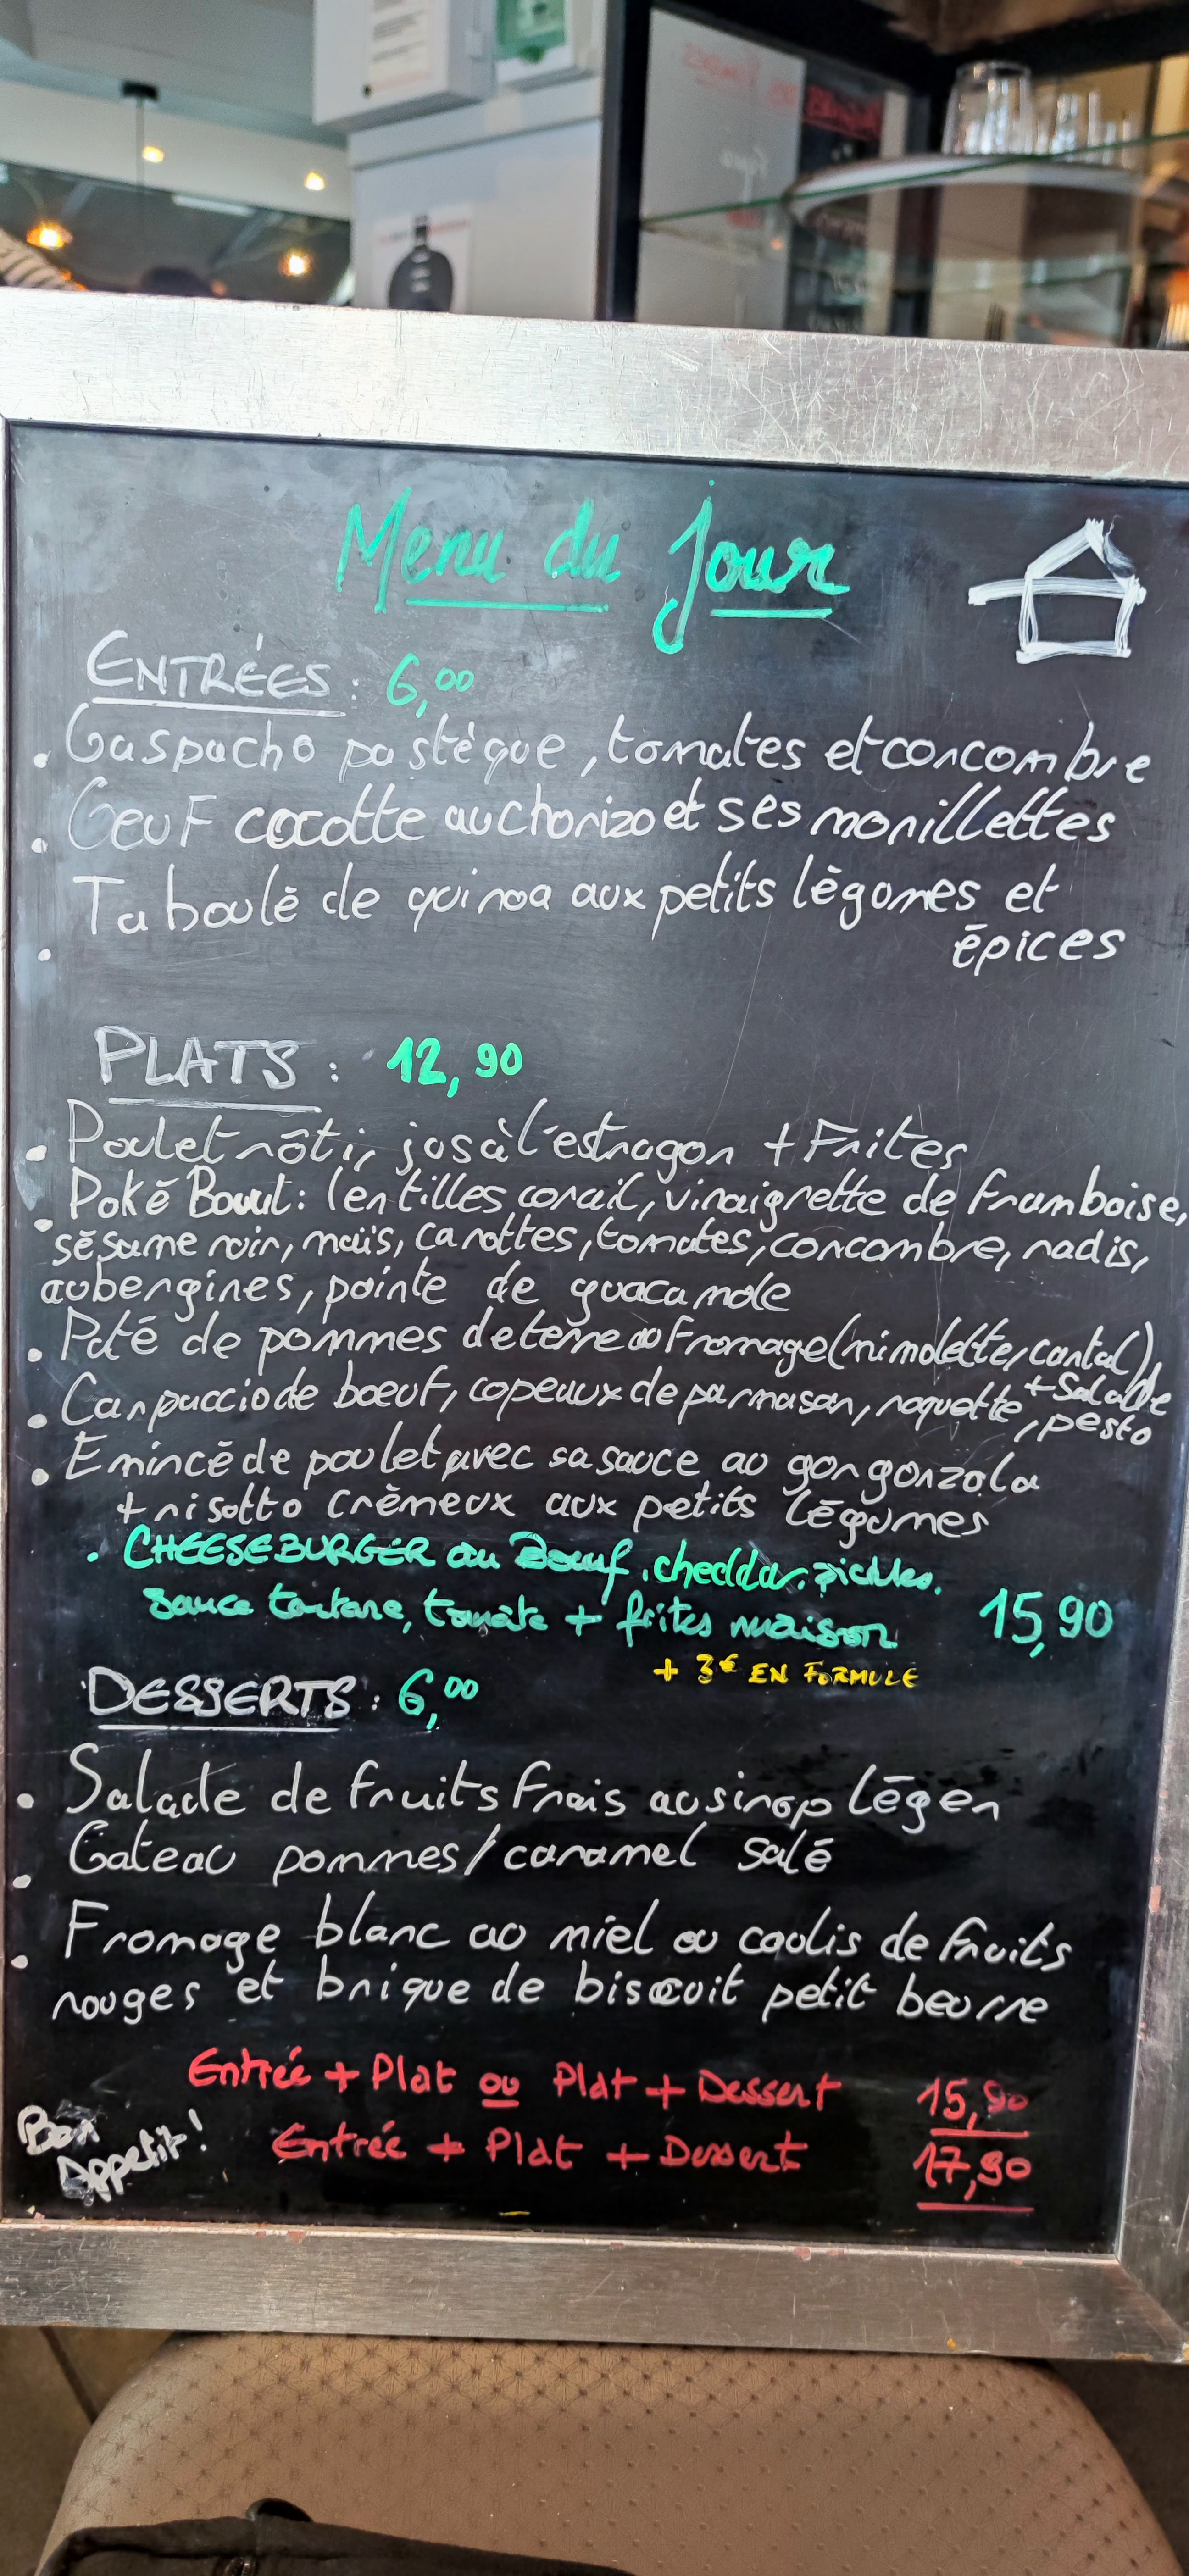 Menu du Jour
ENTRÉES : 6,00
. Gaspacho pastèque, tomates et concombre
. Oeuf cocotte au chorizo et ses mouillettes
. Taboulé de quinoa aux petits légumes et
épices
PLATS : 12,90
. Poulet rôti, jus à l'estragon + Frites
. Poké Bowl : lentilles corail, vinaigrette de framboise,
sésame noir, maïs, carottes, tomates, concombre, radis,
aubergines, pointe de guacamole
. Paté de pommes de terre au Fromage (mimolette, cantal),
+ Salade
. Carpaccio de boeuf, copeaux de parmesan, roquette, pesto
. Emincé de poulet avec sa sauce au gorgonzola
+ risotto crèmeux aux petits légumes
. CHEESEBURGER au Boeuf, cheddar, pickles,
sauce tartare, tomate + frites maison 15,90
+ 3€ EN FORMULE
DESSERTS : 6,00
. Salade de fruits frais au sirop léger
. Gateau pommes/caramel salé
. Fromage blanc au miel ou coulis de fruits
rouges et brique de biscuit petit beurre
Entrée + Plat ou Plat + Dessert 15,90
Entrée + Plat + Dessert 17,90
Bon
Appetit !